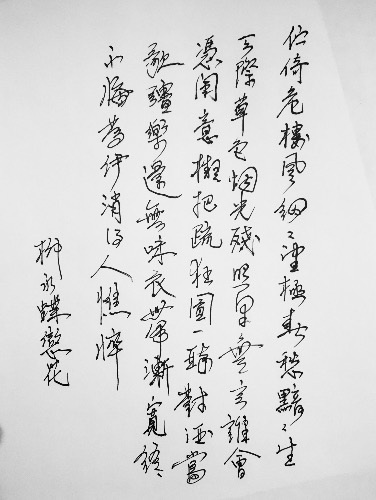 伫倚危樓風細々望極春愁黯々生
天際草色烟光殘照里無言誰會
憑闌意擬把疏狂圖一醉對酒當
歌強樂還無味衣帶漸寬終
不悔為伊消得人憔悴
柳永蝶戀花